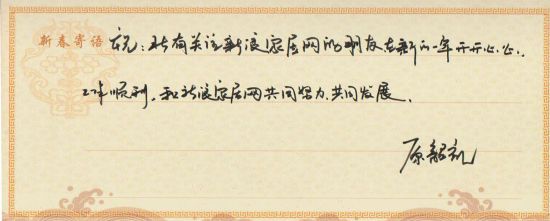 新春寄语
祝：所有关注新浪家居网的朋友在新的一年开开心心，
工作顺利，和新浪家居网共同努力、共同发展。